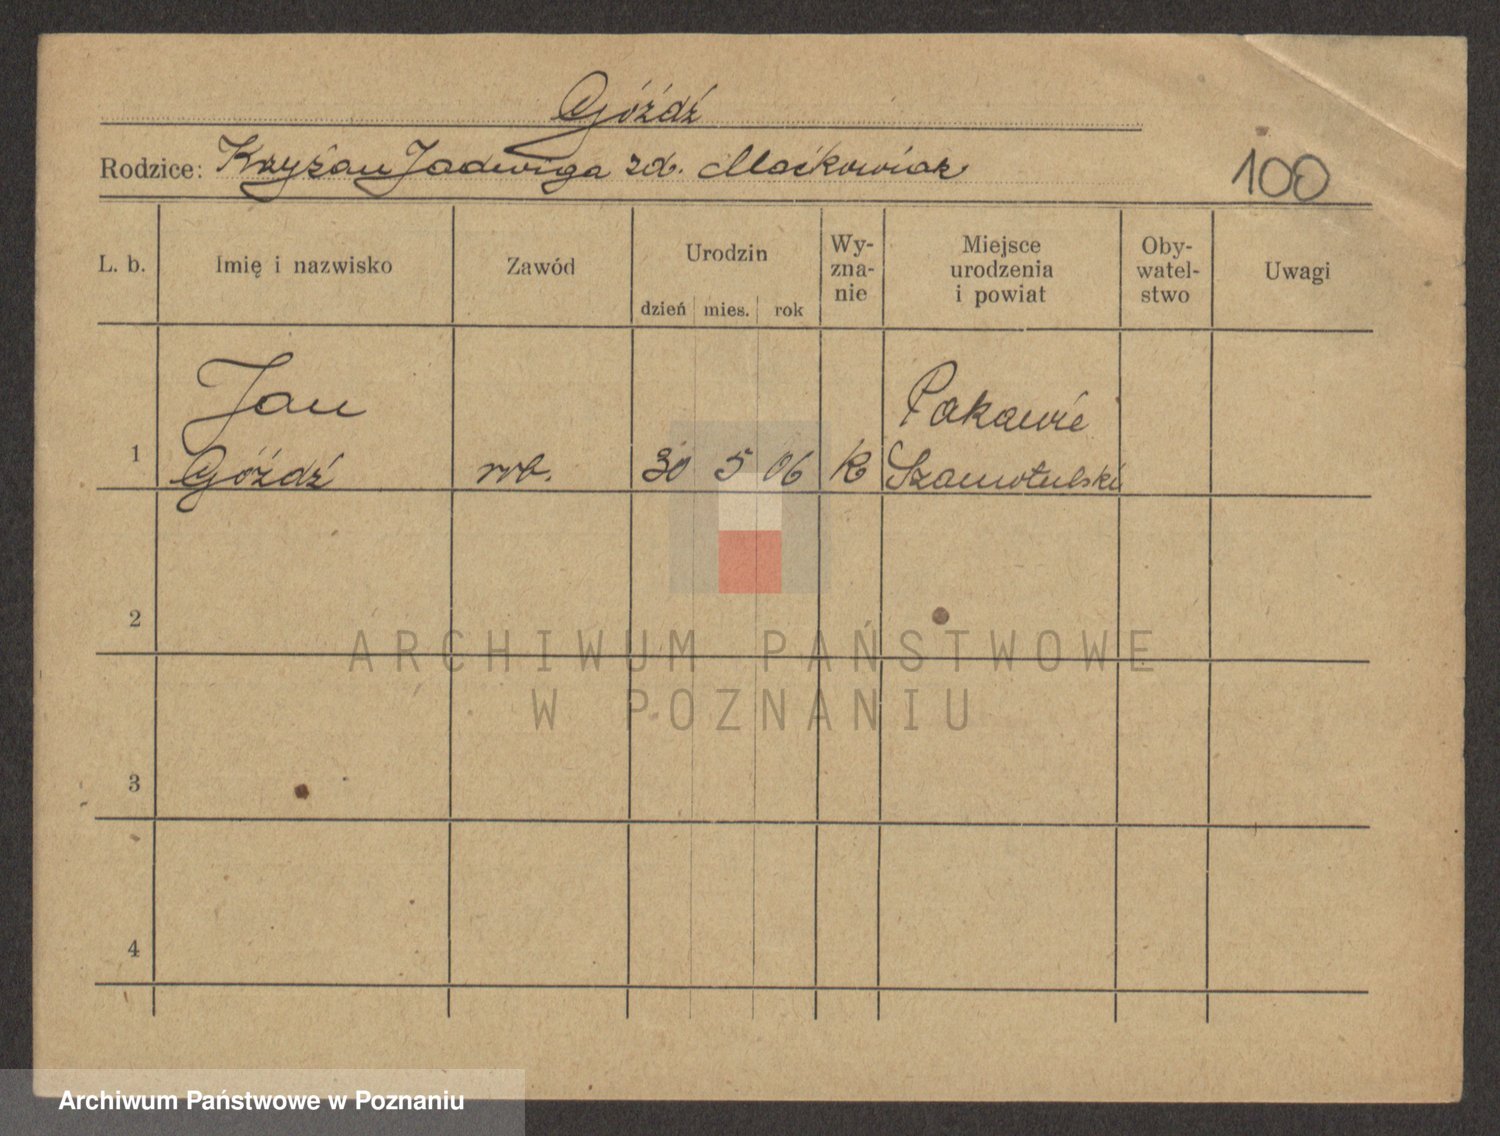 Góźdź
Rodzice: Krzyżan Jadwiga zd. Maćkowiak
100
L. b. Imię i nazwisko Zawód Urodzin dzień mies. rok Wy-zna-nie Miejsce urodzenia i powiat Oby-watel-stwo Uwagi
Jan Pakawie
1 Góźdź rob. 30 5 06 K Szamotulski
2
ARCHIWUM PAŃSTWOWE
W POZNANIU
3
4
Archiwum Państwowe w Poznaniu